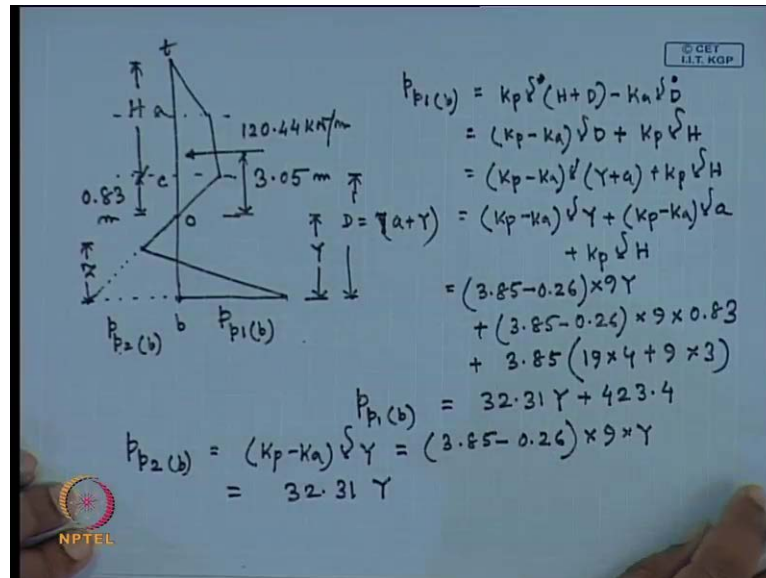 t
© CET
I.I.T. KGP
H a
120.44 kN/m
c
3.05 m
0.83
m
o
Y D = (a+Y)
z
b
Pp2(b) Pp1(b)
Pp1(b) = Kp γ (H+D) - Ka γ D
= (Kp-Ka) γ D + Kp γ H
= (Kp-Ka) γ (Y+a) + Kp γ H
= (Kp-Ka) γ Y + (Kp-Ka) γ a
+ Kp γ H
= (3.85-0.26) × 9Y
+ (3.85-0.26) × 9 × 0.83
+ 3.85 (19 × 4 + 9 × 3)
Pp1(b) = 32.31 Y + 423.4
Pp2(b) = (Kp-Ka) γ Y = (3.85-0.26) × 9 × Y
= 32.31 Y
NPTEL